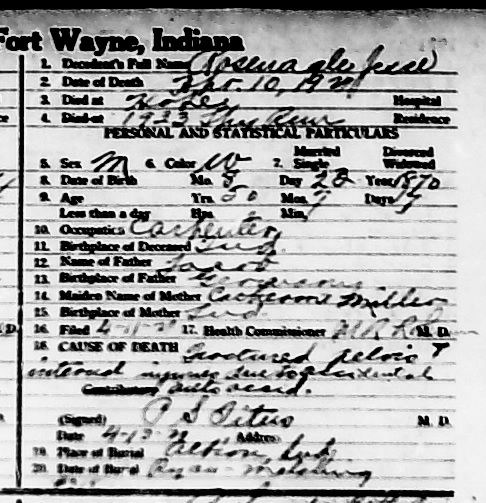 Fort Wayne, Indiana
1. Decedent's Full Name Rosenagle Jesse
2. Date of Death Sept. 10, 192
3. Died at Hospital
4. Died at 1933 Residence
PERSONAL AND STATISTICAL PARTICULARS
Married Divorced
5. Sex M 6. Color W 7. Single Widowed
8. Date of Birth Mo. 8 Day 28 Year 1870
9. Age Yrs. 50 Mos. 7 Days
Less than a day Hrs. Min.
10. Occupation Carpenter
11. Birthplace of Deceased Ind.
12. Name of Father Jacob
13. Birthplace of Father Germany
14. Maiden Name of Mother Catherine Miller
15. Birthplace of Mother Ind.
16. Filed 4- 17. Health Commissioner M. D.
18. CAUSE OF DEATH Fractured pelvis &
internal injuries due to accidental
Contributory auto accid.
(Signed) P S Titus M. D.
Date 4-13-21 Address
19. Place of Burial Albion, Ind.
20. Date of Burial